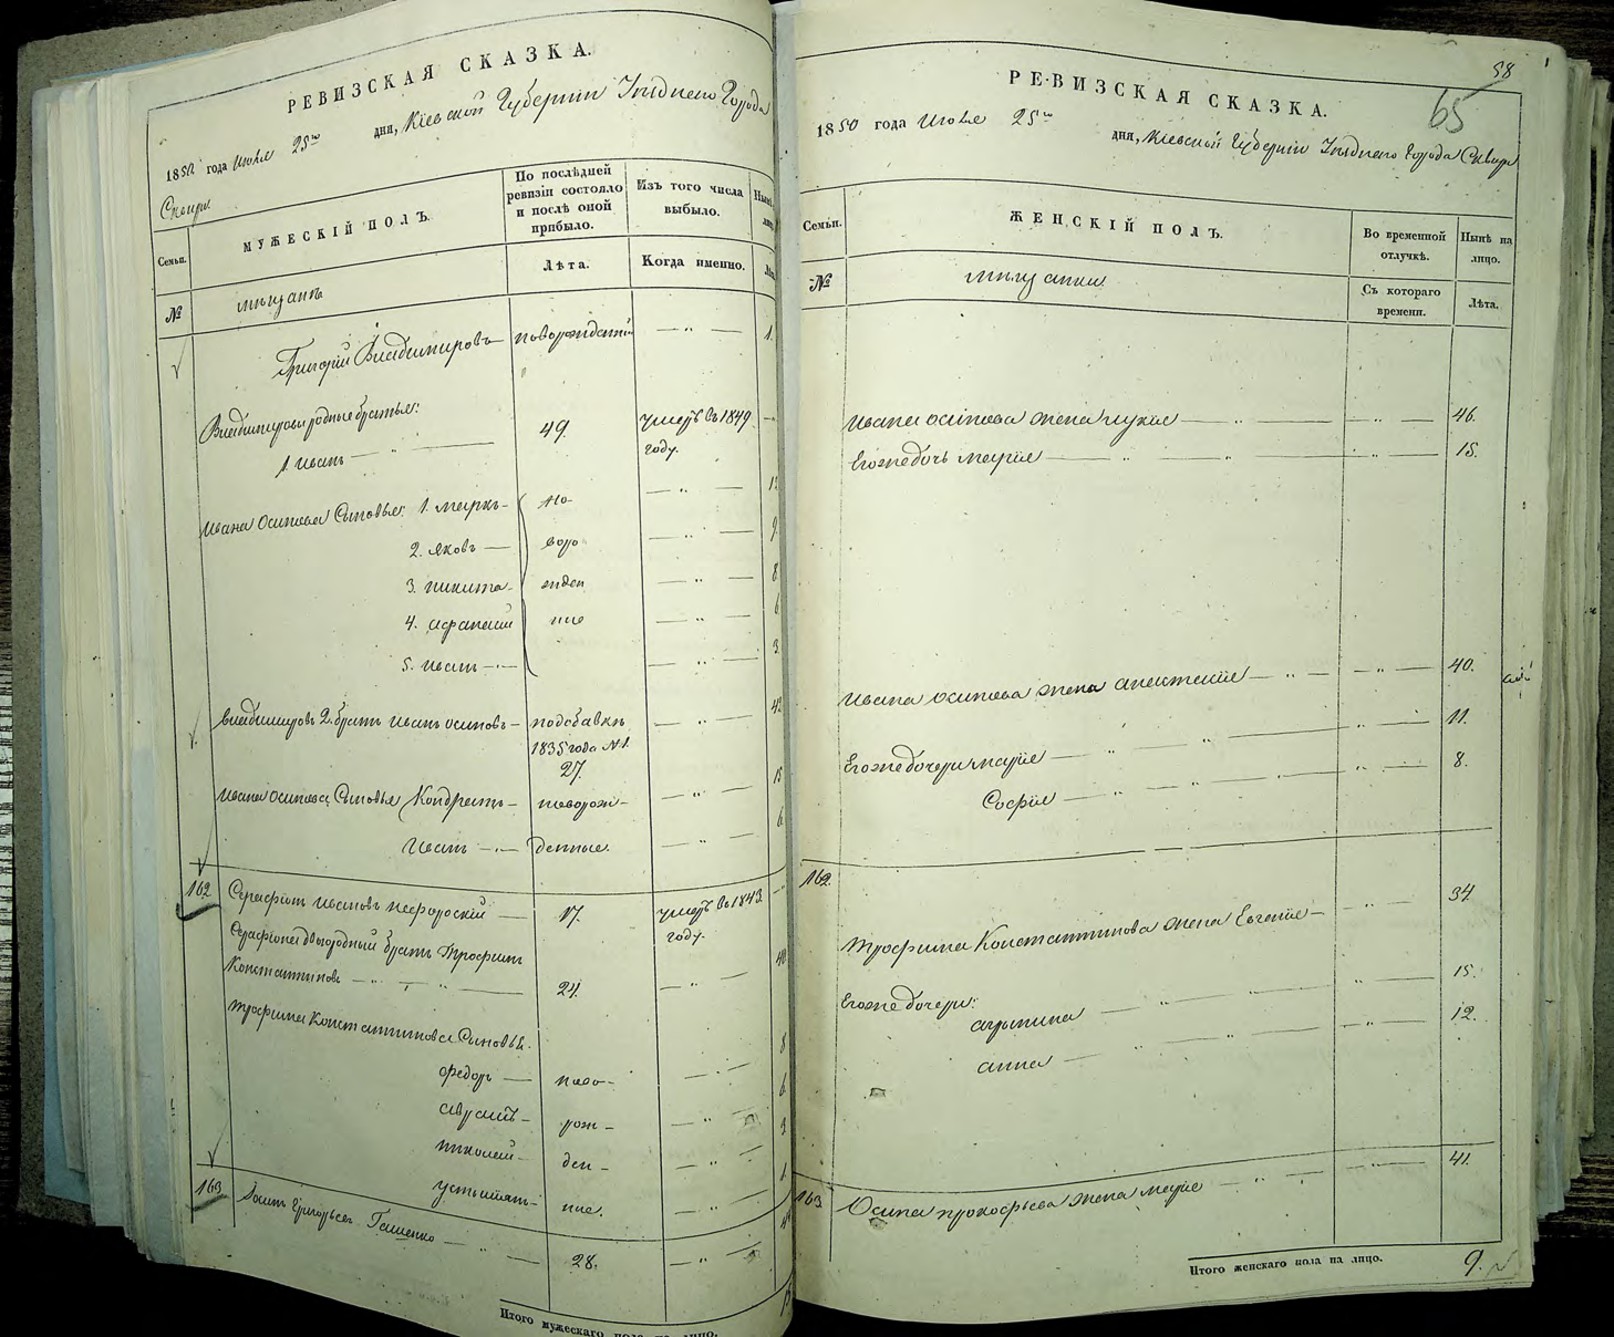 РЕВИЗСКАЯ СКАЗКА.
1850 года Июля 25го дня, Кіевской Губерніи Уѣзднаго Города
Сквиры
Семьи.
МУЖЕСКІЙ ПОЛЪ.
По послѣдней ревизіи состояло и послѣ оной прибыло.
Изъ того числа выбыло.
Лѣта.
Когда именно.
№
мѣщанъ
Григорій Владимировъ — новорожденный — „ — 1.
Владимирова родные братья:
1. Иванъ — „ — 49. умеръ въ 1849 году.
Ивана Осипова Сыновья: 1. Маркъ — но- — „ —
2. Яковъ — воро — „ — 9.
3. Никита — жден — „ — 8
4. Афанасій ные — „ — 6
5. Иванъ — „ — 3.
Владимировъ 2. братъ Иванъ Осиповъ — подобавкѣ — „ — 42
1835 года №1.
27.
Ивана Осипова Сыновья Кондратъ — новорож- — „ — 15
Иванъ — денные. — „ — 6
162 Серафимъ Ивановъ — 17. умеръ въ 1843 году.
Серафима двоюродный братъ Трофимъ
Константиновъ — „ — 24. — „ — 40
Трофима Константинова Сыновья.
Федоръ — ново- — „ — 8
Авраамъ — рож- — „ — 6
Николай — ден- — „ — 3
Устиянъ — ные. — „ — 1
163 Осипъ Григорьевъ Гащенко — „ — 28. — „ —
Итого мужескаго пола на лицо.
58
65
РЕВИЗСКАЯ СКАЗКА.
1850 года Июля 25го дня, Кіевской Губерніи Уѣзднаго Города Сквиры
Семьи.
ЖЕНСКІЙ ПОЛЪ.
Во временной отлучкѣ.
Нынѣ на лицо.
№
мѣщанки
Съ котораго времени.
Лѣта.
Ивана Осипова жена Лукія — „ — 46.
Его же дочь Марія — „ — 15.
Ивана Осипова жена Анастасія — „ — 40.
Его же дочери Марія — „ — 11.
Софія — „ — 8.
162.
Трофима Константинова жена Евгенія — „ — 34
Его же дочери:
Агрипина — „ — 15.
Анна — „ — 12.
163. Осипа Прокофьева жена Марія — „ — 41.
Итого женскаго пола на лицо. 9.